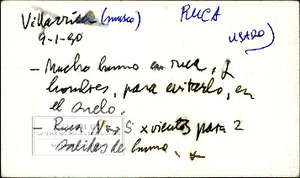 Villarrica (museo)
RUCA
9-1-90
USADO)
- Mucho humo en ruca, y
hombres, para evitarlo, en
el suelo.
- Ruca N → S x vientos para 2
salidas de humo.